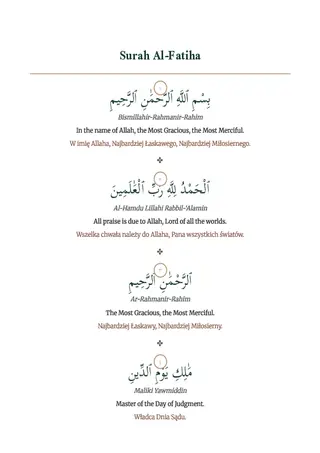 Surah Al-Fatiha
بِسْمِ ٱللَّهِ ٱلرَّحْمَٰنِ ٱلرَّحِيمِ
Bismillahir-Rahmanir-Rahim
In the name of Allah, the Most Gracious, the Most Merciful.
W imię Allaha, Najbardziej Łaskawego, Najbardziej Miłosiernego.
ٱلْحَمْدُ لِلَّهِ رَبِّ ٱلْعَٰلَمِينَ
Al-Hamdu Lillahi Rabbil-'Alamin
All praise is due to Allah, Lord of all the worlds.
Wszelka chwała należy do Allaha, Pana wszystkich światów.
ٱلرَّحْمَٰنِ ٱلرَّحِيمِ
Ar-Rahmanir-Rahim
The Most Gracious, the Most Merciful.
Najbardziej Łaskawy, Najbardziej Miłosierny.
مَٰلِكِ يَوْمِ ٱلدِّينِ
Maliki Yawmiddin
Master of the Day of Judgment.
Władca Dnia Sądu.